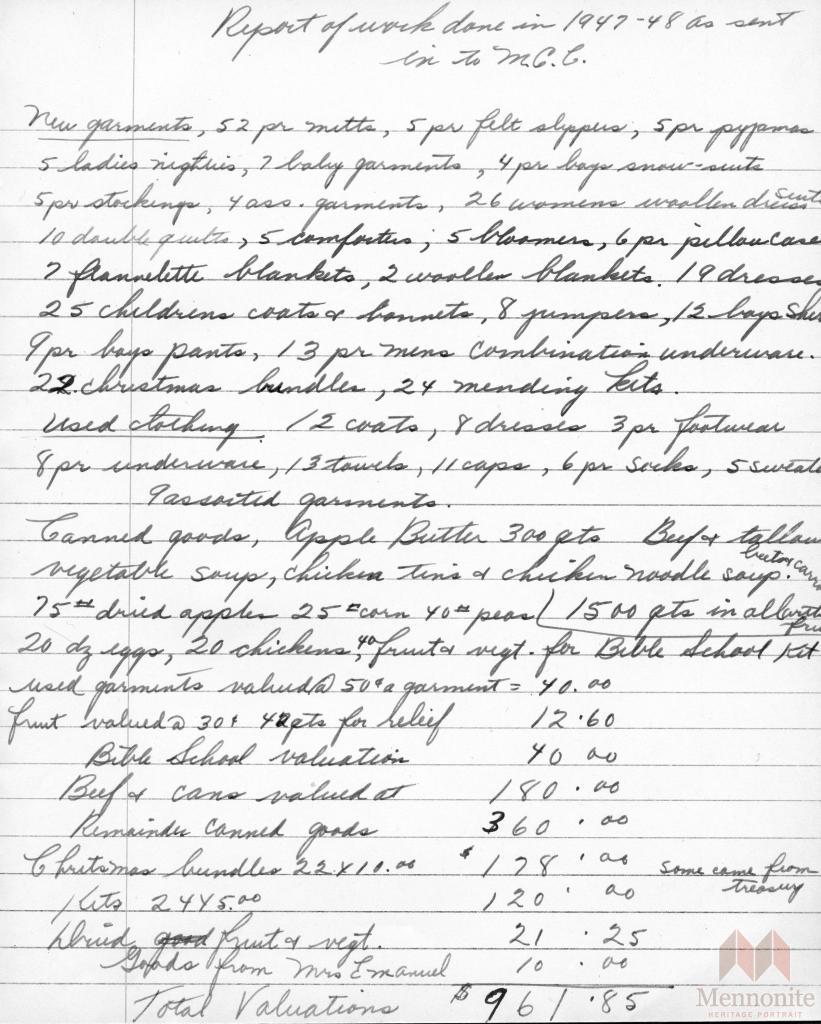 Report of work done in 1947-48 as sent
in to M.C.C.
New garments, 52 pr mitts, 5 pr felt slippers, 5 pr pyjamas
5 ladies nighties, 7 baby garments, 4 pr boys snow-suits
5 pr stockings, 4 ass. garments, 26 womens woollen dress suits
10 double quilts, 5 comforters, 5 bloomers, 6 pr pillow case
7 flannelette blankets, 2 woollen blankets. 19 dresses
25 childrens coats & bonnets, 8 jumpers, 12 boys
9 pr boys pants, 13 pr mens combination underware.
22 christmas bundles, 24 mending kits.
Used clothing. 12 coats, 8 dresses 3 pr footwear
8 pr underware, 13 towels, 11 caps, 6 pr socks, 5 sweat
9 assorted garments.
Canned goods, Apple Butter 300 qts Beef & tallow
vegetable soup, chicken tins & chicken noodle soup. beets & carro
75# dried apples 25# corn 40# peas (1500 qts in all with fru
20 dz eggs, 20 chickens, 40 fruit & vegt. for Bible School Kit
used garments valued @ 50¢ a garment = 40.00
fruit valued @ 30¢ 42 qts for relief 12.60
Bible School valuation 40 00
Beef & cans valued at 180.00
Remainder canned goods 360.00
Chritsmas bundles 22 x 10.00 $178.00 some came from treasury
Kits 24 x 5.00 120.00
Dried good fruit & vegt. 21.25
Goods from Mrs Emanuel 10.00
Total Valuations $961.85
Mennonite
HERITAGE PORTRAIT